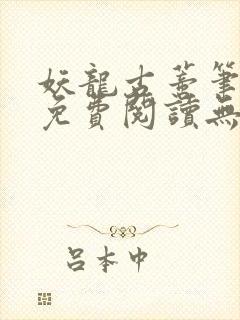 妖龍古蓄筆
免費閱讀無
呂本中